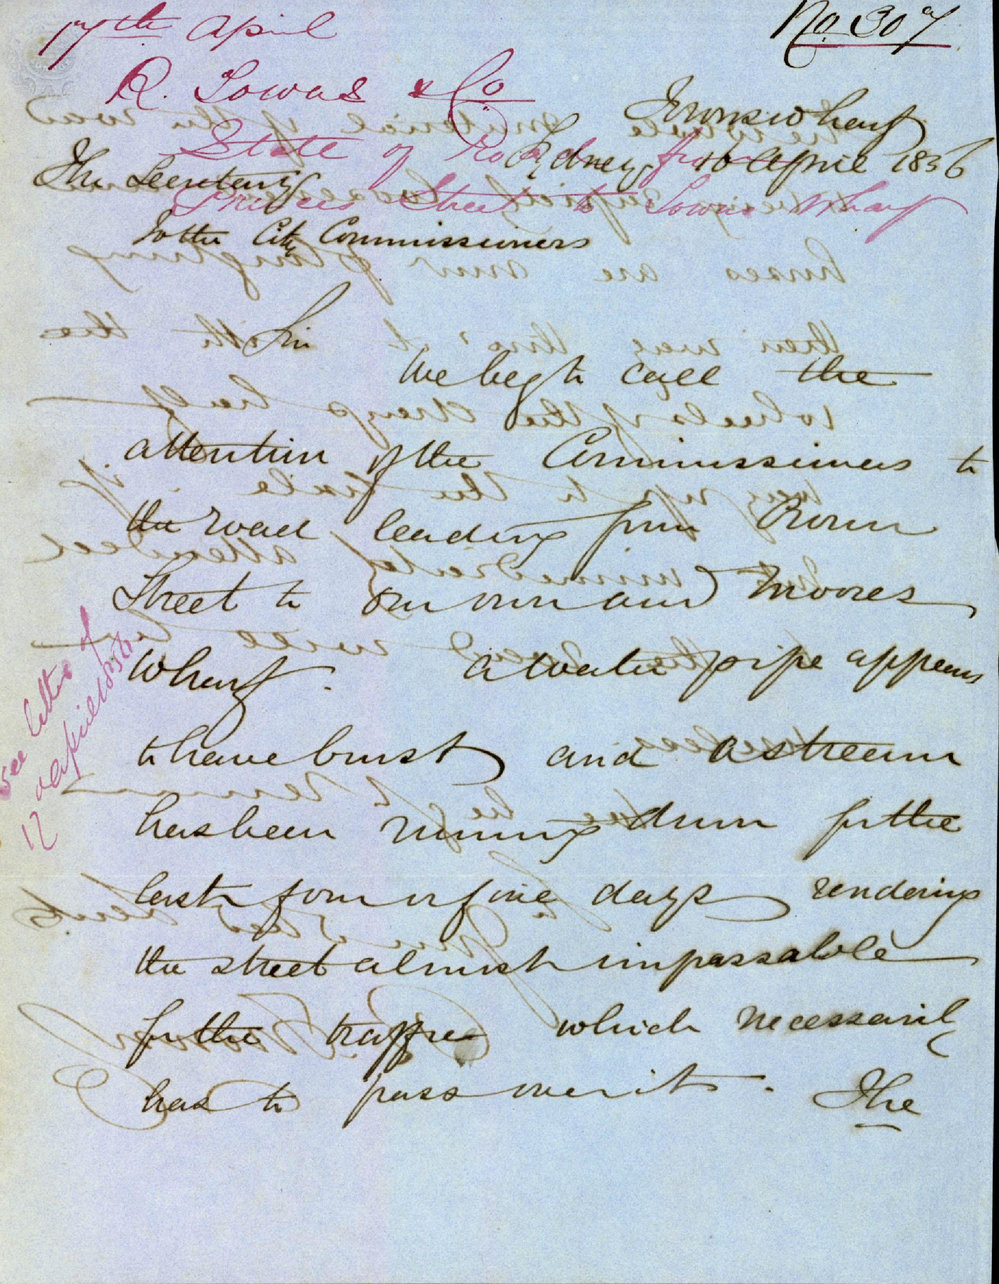 17th April
No. 307
R. Towns & Co
Towns Wharf
State of Road from
Sydney, 16 April 1856
The Secretary
Princes Street to Towns Wharf
To the City Commissioners
Sir
We beg to call the
attention of the Commissioners to
the road leading from
Street to our own and Moores
Wharf. A water pipe appears
to have burst and a stream
has been running down for the
last four or five days rendering
the street almost impassable
for the traffic which necessarily
has to pass over it. The
See letter of
12 April 1856